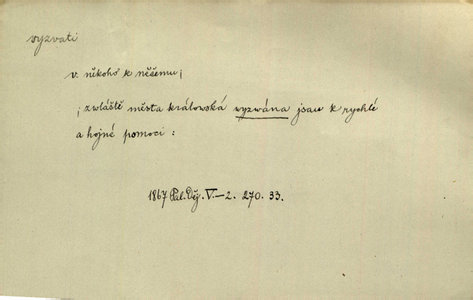 vyzvati
v. někoho k něčemu;
; zwláště města králowská wyzwána jsau k rychlé
a hojné pomoci :
1867 Pal. Děj. V–2. 270. 33.